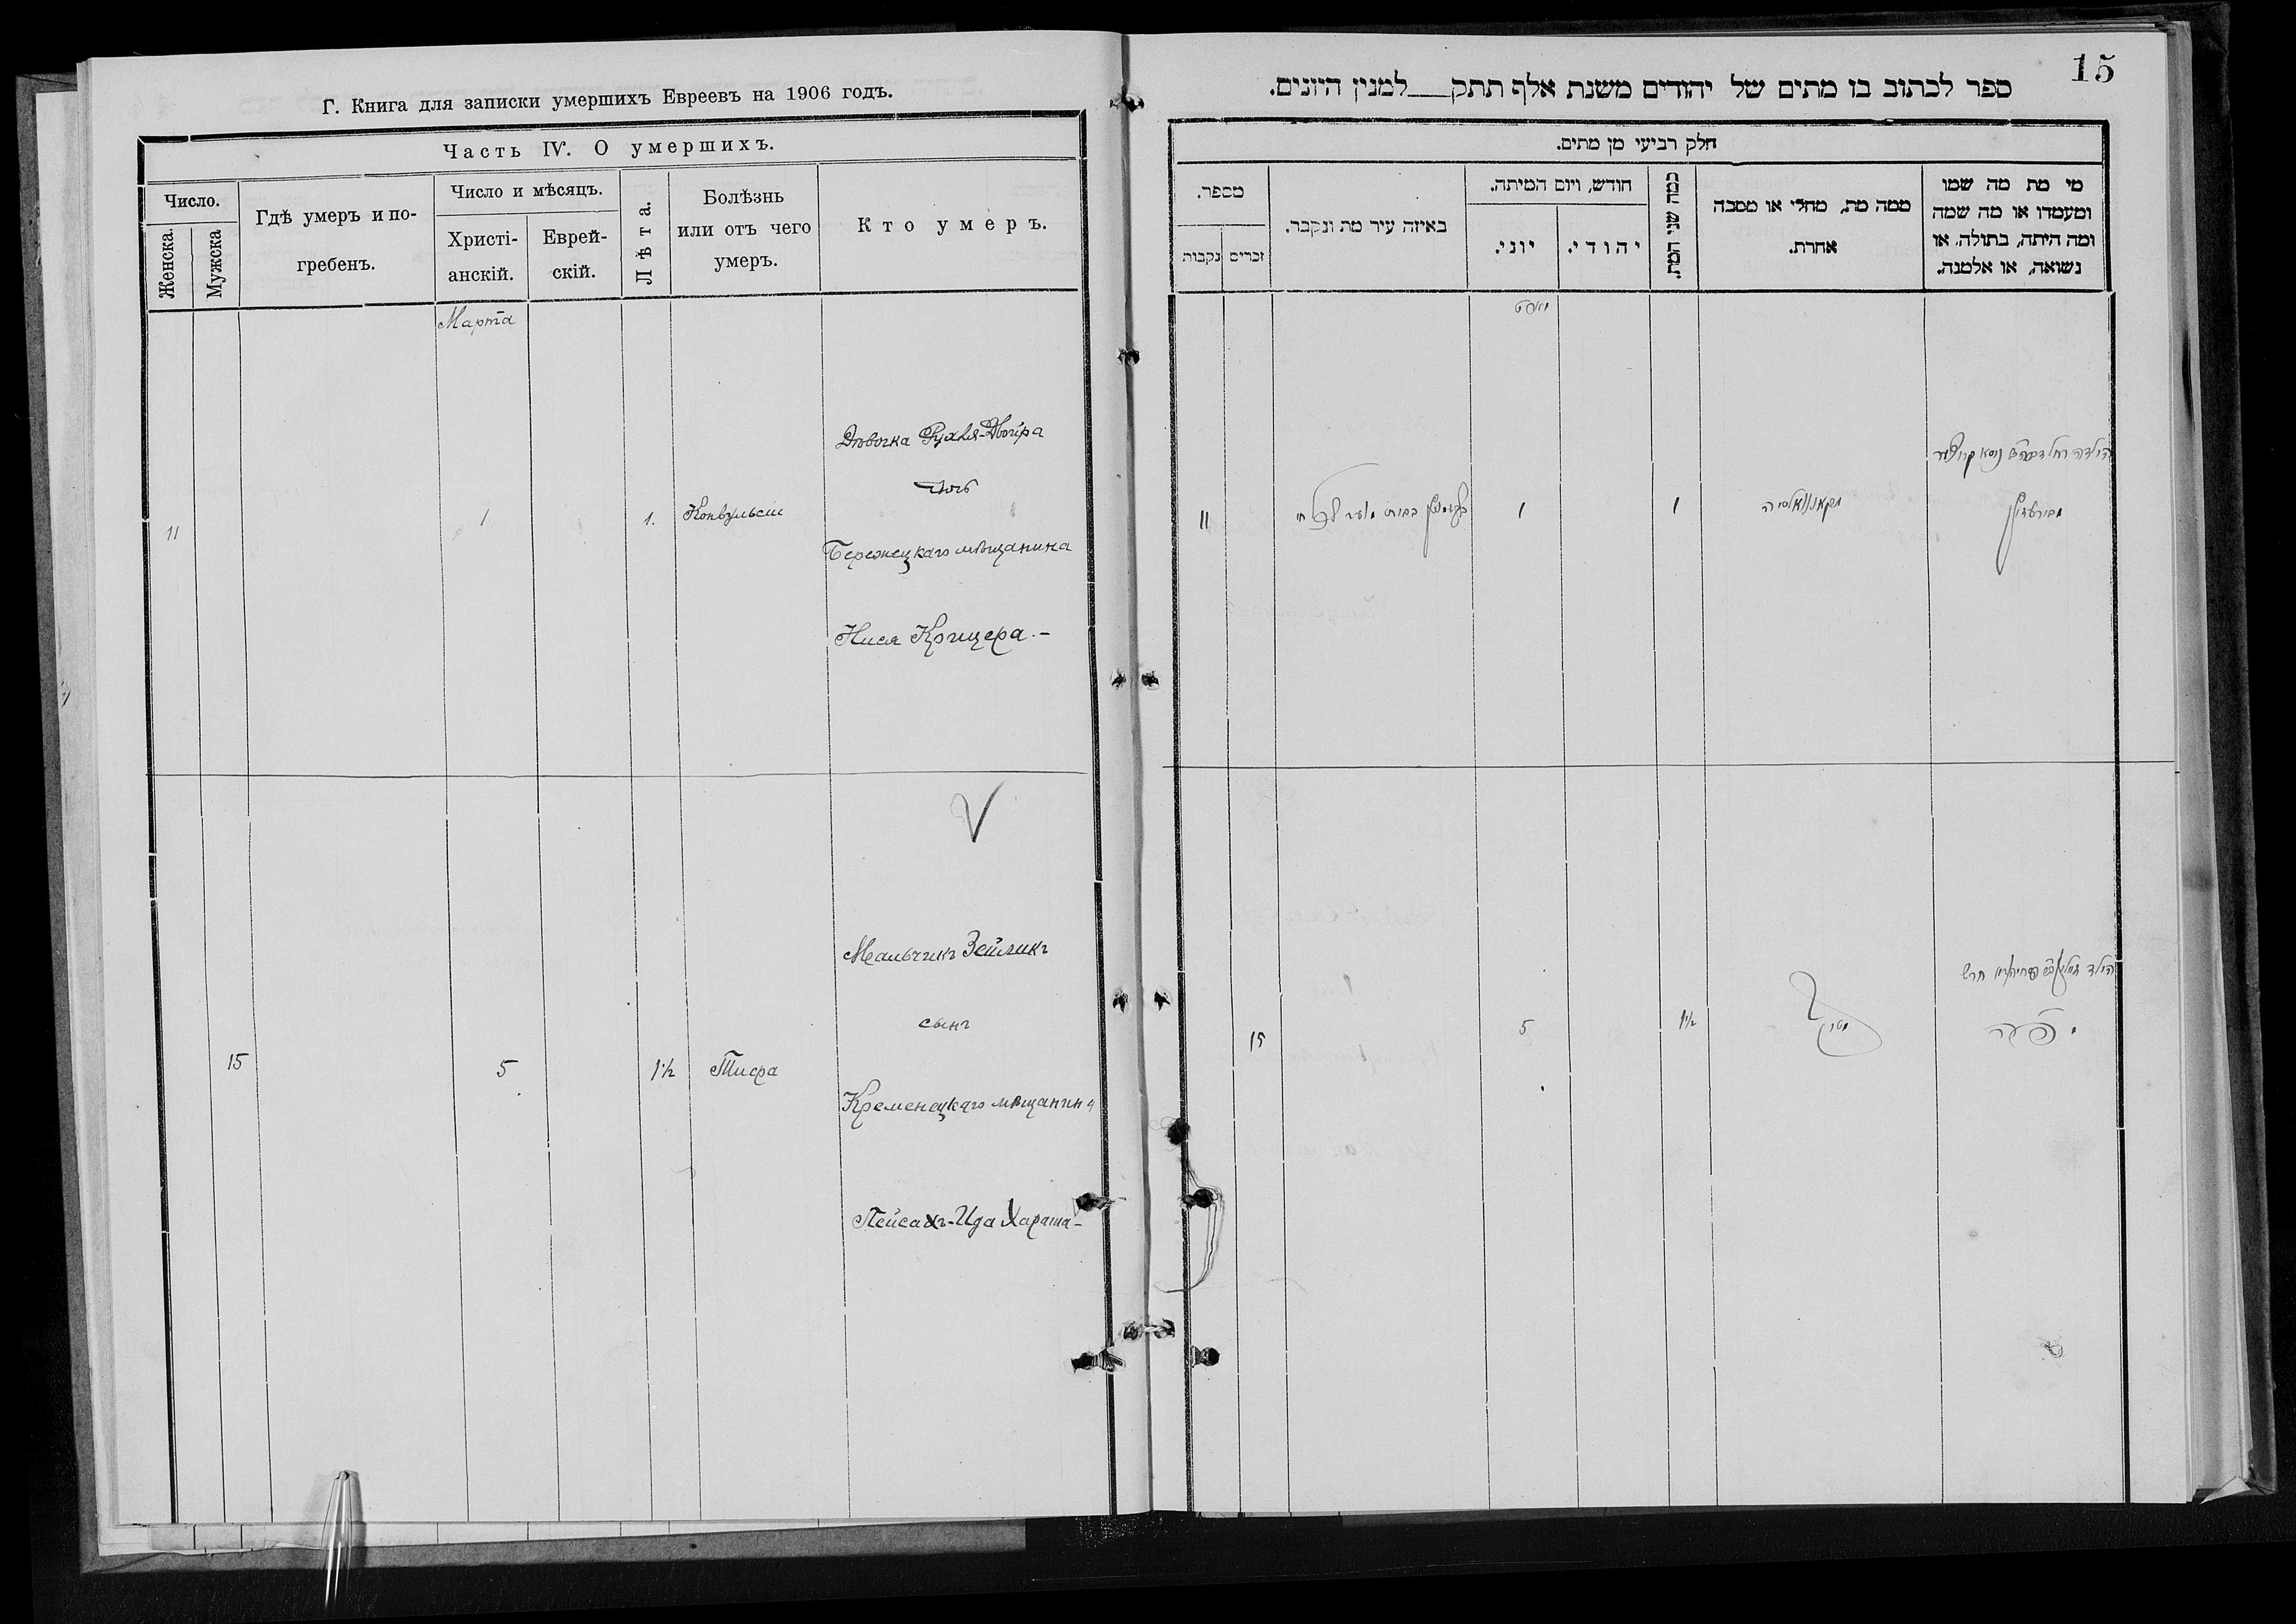 Г. Книга для записки умершихъ Евреевъ на 1906 годъ.
Часть IV. О умершихъ.
Число.
Женска.
Мужска
Гдѣ умеръ и по-
гребенъ.
Число и мѣсяцъ.
Христі-
анскій.
Еврей-
скій.
Лѣта.
Болѣзнь
или отъ чего
умеръ.
Кто умеръ.
Марта
11
1
1.
Конвульсіи
Дѣвочка Рухля-Двойра
дочь
Бережецкаго мѣщанина
Нися Крицера.-
V
15
5
1½
Тифа
Мальчикъ Зейликъ
сынъ
Кременецкаго мѣщанина
Пейсахъ-Ида Хараша-
15
ספר לכתוב בו מתים של יהודים משנת אלף תתק___למנין היונים.
חלק רביעי מן מתים.
מספר.
נקבות
זכרים
באיזה עיר מת ונקבר.
חודש, ויום המיתה.
יוני.
יהודי.
כמה שני המת.
ממה מת, מחלי או מסבה
אחרת.
מי מת מה שמו
ומעמדו או מה שמה
ומה היתה, בתולה, או
נשואה, או אלמנה.
11
1
1
15
5
1½